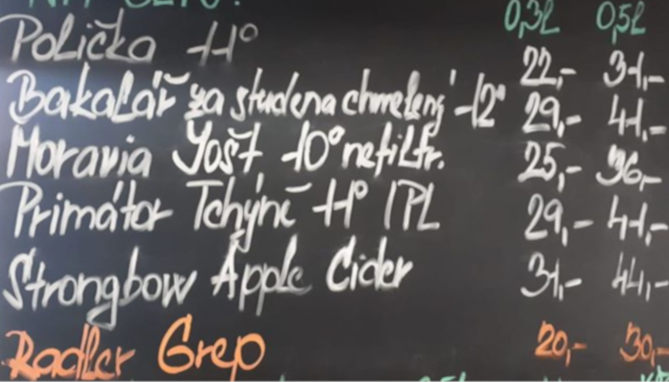 0,3l 0,5l
Polička 11° 22,- 31,-
Bakalář za studena chmelený 12° 29,- 41,-
Moravia Jošt 10° nefiltr. 25,- 36,-
Primátor Tchýně 11° IPL 29,- 41,-
Strongbow Apple Cider 31,- 44,-
Radler Grep 20,- 30,-